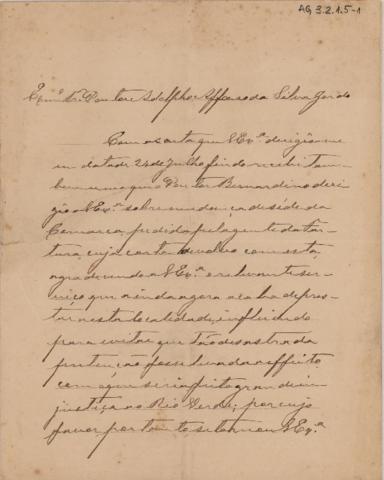 AG.3.2.1.5-1
Exmº Sr. Doutor Adolpho Affonso da Silva Gordo
Com a carta que V Exª. dirigio-me
em data de 24 de Julho findo recebi tam-
bem uma que o Doutor Bernardino diri-
gio a V Exª. sobre mudança de séde da
Comarca, pedida pela gente da
cuja carta devolvo com esta,
agradecendo a V Exª. o relevante ser-
viço que ainda agora acaba de pres-
tar a esta localidade, influindo
para evitar que tão desastrada
pretenção fosse levada a effeito
com a que seria feita grande in-
justiça ao Rio Verde; por cujo
favor, por tanto se tornou V Exª.